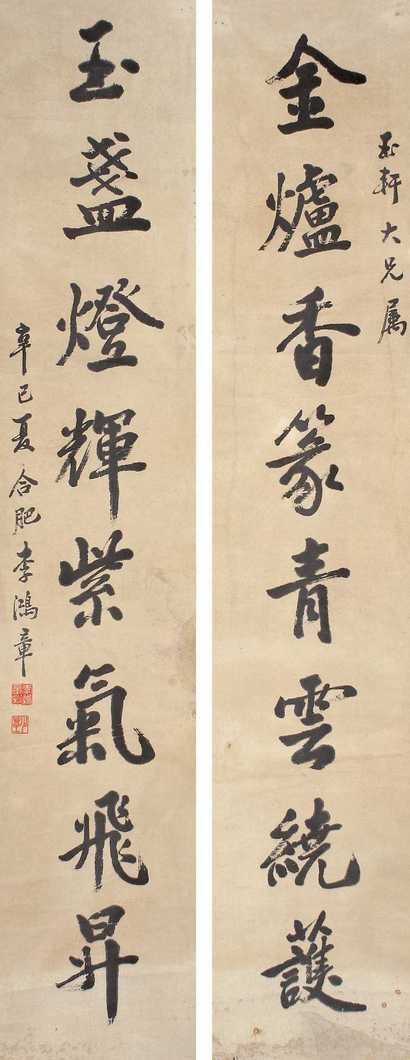 玉軒大兄属
金爐香篆青雲繞護
玉盞燈輝紫氣飛昇
辛巳夏合肥李鴻章